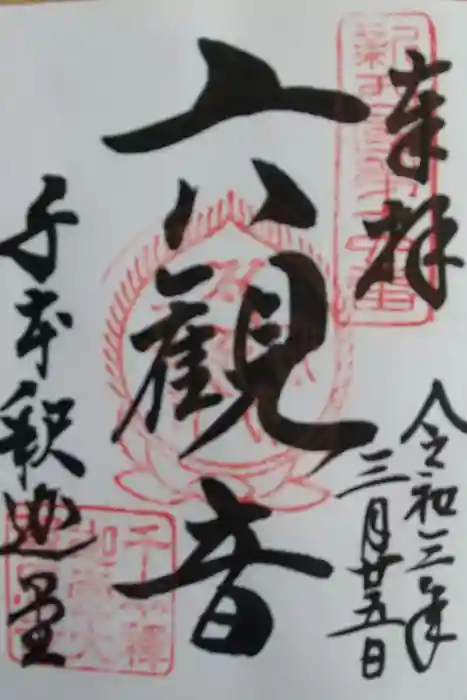 奉拝
令和三年
三月廿五日
六観音
千本釈迦堂